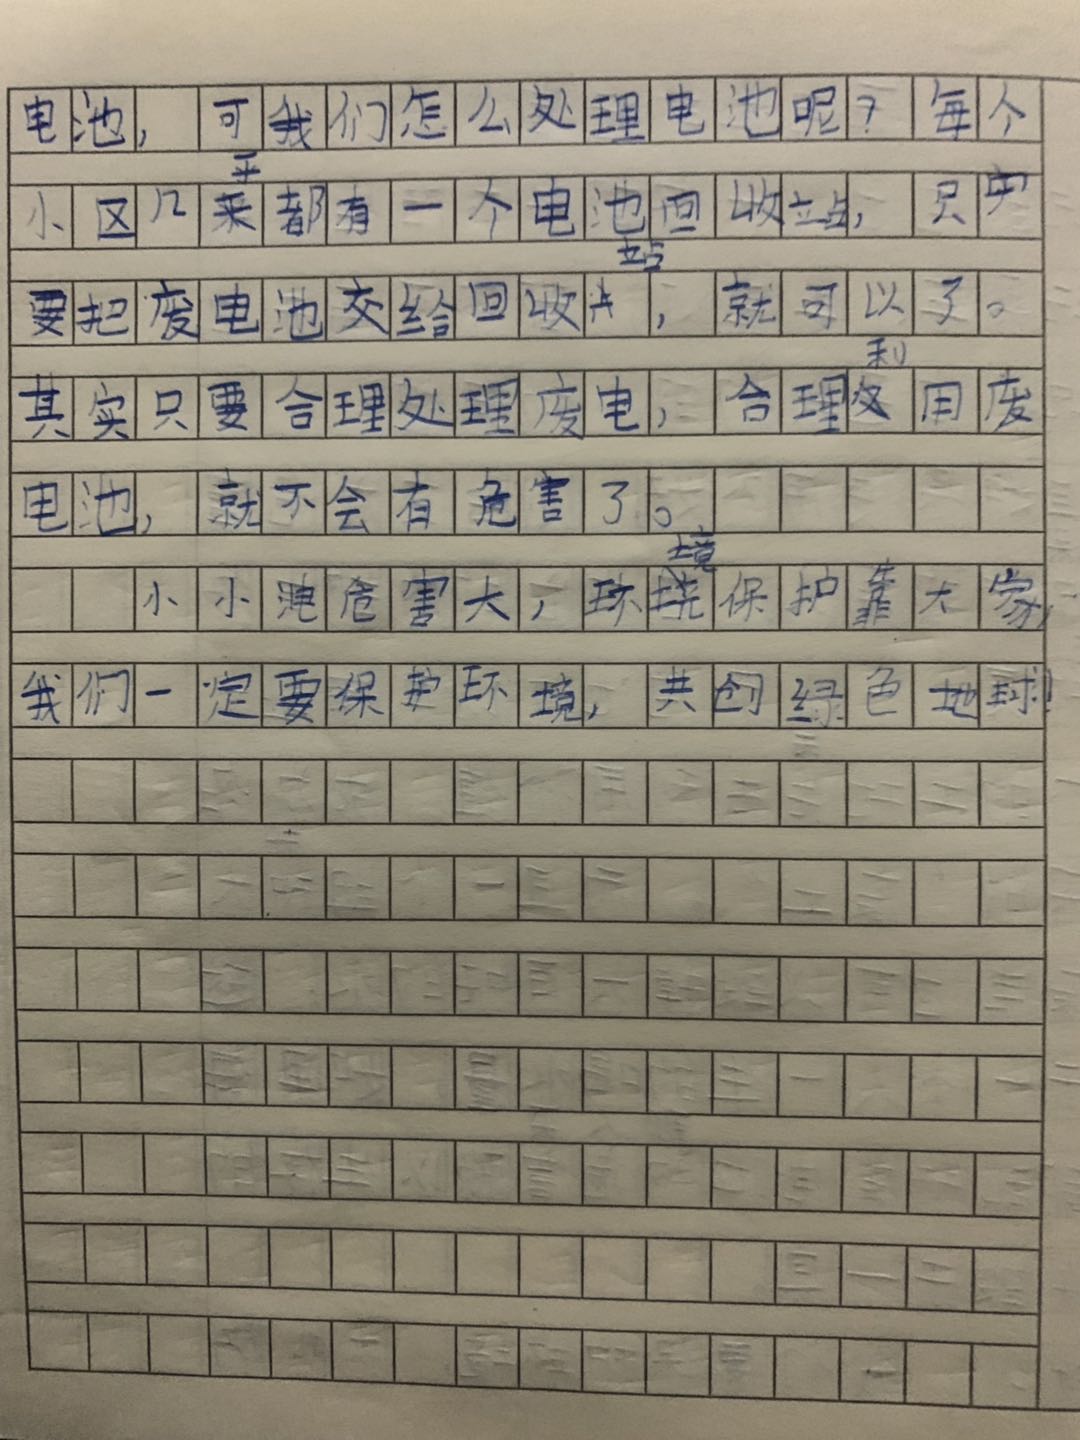 电池，可我们怎么处理电池呢？每个
小区几乎都有一个电池回收站，只
要把废电池交给回收站，就可以了。
其实只要合理处理废电，合理利用废
电池，就不会有危害了。
小小电危害大，环境保护靠大家，
我们一定要保护环境，共创绿色地球！